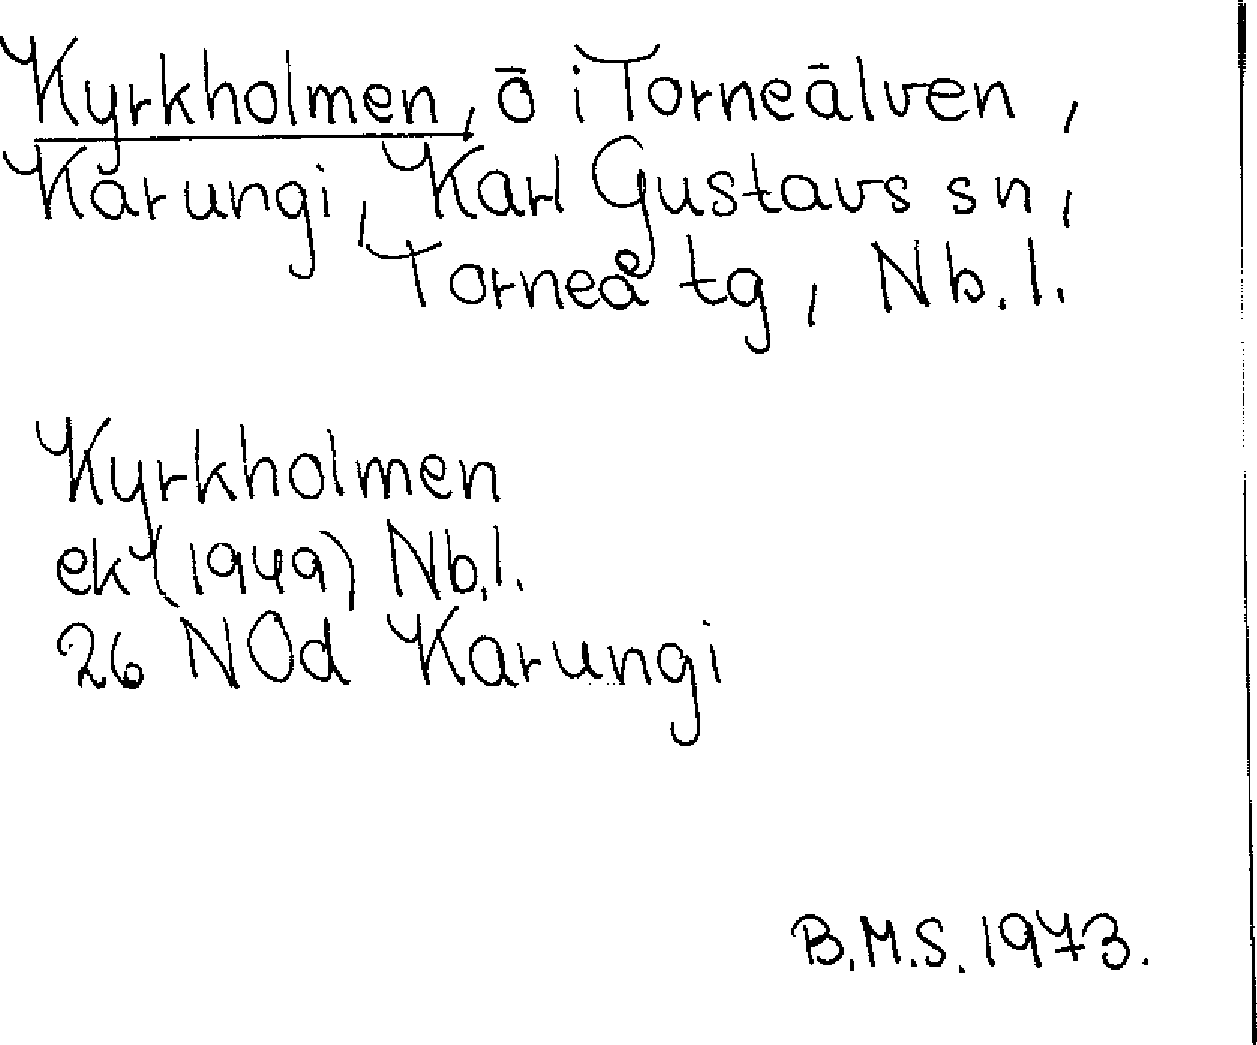 Kyrkholmen, ö i Torneälven,
Karungi, Karl Gustavs sn,
Torneå tg, Nb.l.
Kyrkholmen
ek (1949) Nb.l.
26 NOd Karungi
B.M.S. 1973.